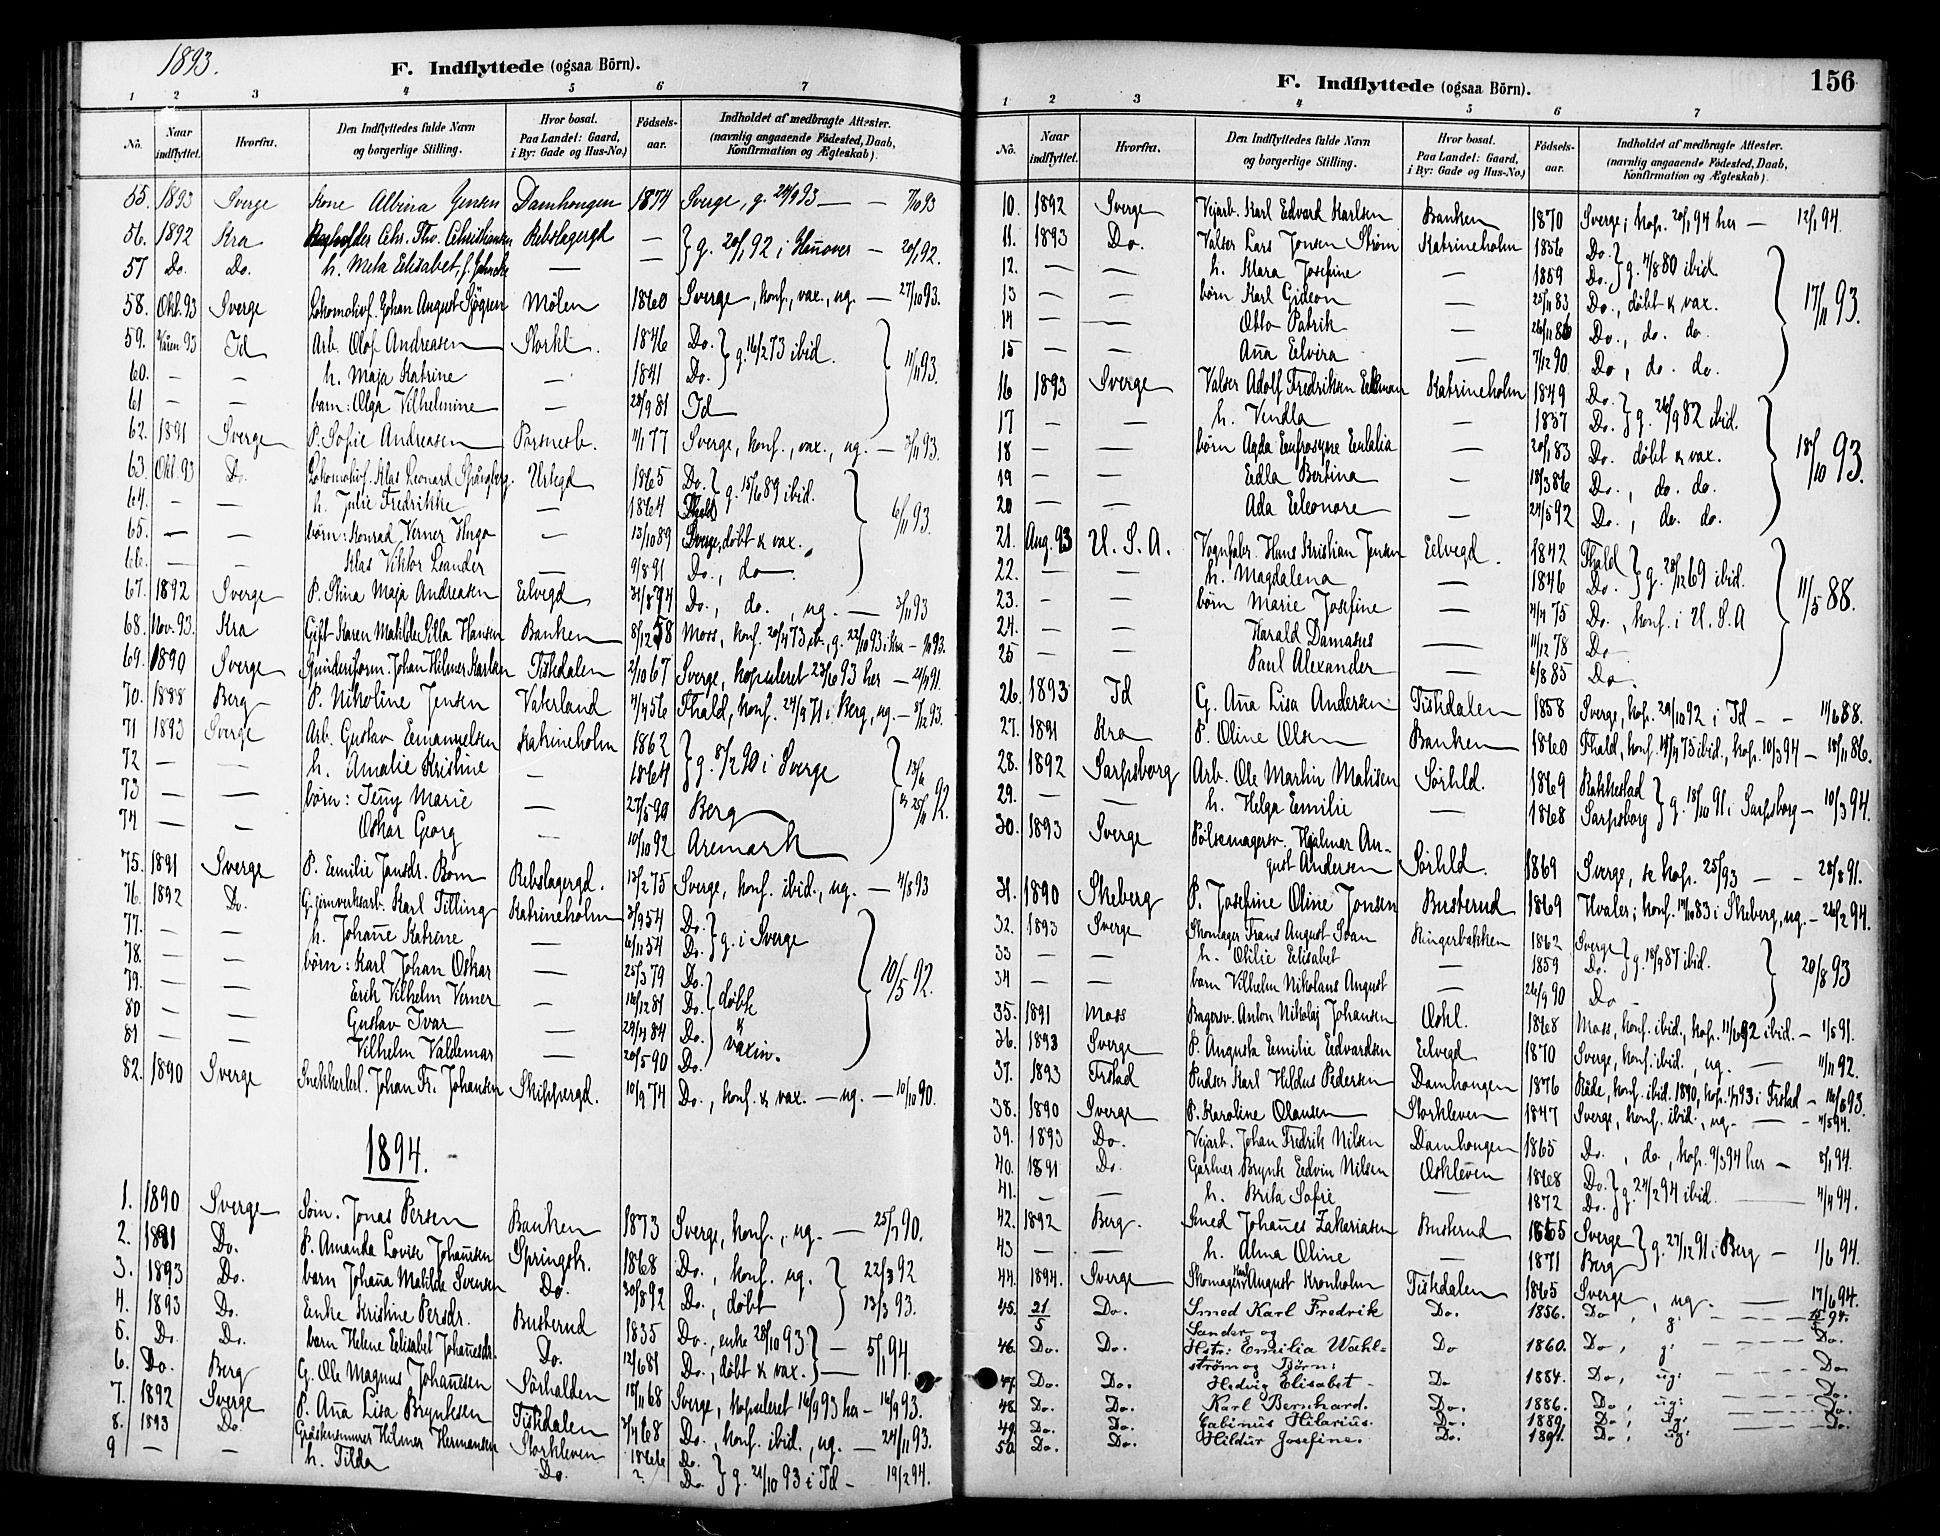 1893.
F. Indflyttede (ogsaa Börn).
1 2 3 4 5 6 7
No. Naar indflyttet. Hvorfra. Den Indflyttedes fulde Navn og borgerlige Stilling. Hvor bosat. Paa Landet: Gaard, i By: Gade og Hus-No.) Födsels-aar. Indholdet af medbragte Attester. (navnlig angaaende Födested, Daab, Konfirmation og Ægteskab).
55. 1893 Sverge Kone Albina Jensen Damhougen 1874 Sverge, g. 24/9 93 — 7/10 93
56. 1892 Kra Chr. Thv. Christiansen Rebslagergd — g. 20/1 92 i Hanover — 20/1 92.
57 Do. Do. h. Meta Elisabet, f. — —
58. Okt. 93 Sverge Lokomotivf. Johan August Sjögren Mölen 1860 Sverge, konf., vax., ug. — 27/10 93.
59. 93 Id Arb. Olof Andreasen Storkl. 1846 Do. g. 16/2 73 ibid. 11/11 93.
60. — — h. Maja Katrine — 1841 Do.
61 — — barn: Olga Vilhelmine — 28/9 81 Id
62. 1891 Sverge P. Sofie Andreasen 11/1 77 Sverge, konf., vax., ug. — 3/11 93.
63. Okt. 93 Do. Lokomotivf. Klas Leonard Spångberg. Urtegd 1865 Do. g. 15/6 89 ibid. 6/11 93.
64. — — h. Julie Fredrikke — 1864 Fhald
65. — — börn: Konrad Verner Hugo — 13/10 89 Sverge, döbt & vax.
66. — — Klas Viktor Leander — 9/8 91 Do., do.
67. 1892 Sverge P. Stina Maja Andreasen Elvegd 31/8 74 Do., do., ug. — 3/11 93
68. Nov. 93. Kra Gift Karen Matilde Hansen Banken 8/12 58 Moss, konf. 20/4 73 ib., g. 22/10 93 i Kra — 93.
69. 1890 Sverge Johan Hilmer Karlsen Tistedalen 2/10 67 Sverge, kopuleret 23/10 93 her — 21/1 91.
70. 1888 Berg P. Nikoline Jensen Vaterland 7/4 56 Fhald, konf. 24/9 71 i Berg, ug. — 5/12 93.
71 1893 Sverge Arb. Gustav Emanuelsen Katrineholm 1862 g. 8/2 90 i Sverge 13/6 & 25/11 92.
72 — — h. Amalie Kristine — 1864
73 — — börn: Jenny Marie — 27/5 90 Berg
74 — — Oskar Georg — 10/10 92 Aremark
75. 1891 Sverge P. Emilie Jansdr. Bom Rebslagergd. 13/2 75 Sverge, konf. ibid., ug. — 4/8 93
76. 1892 Do. G. jernverksarb. Karl Titling Katrineholm 3/9 54 Do. g. i Sverge 10/5 92.
77. — — h. Johanne Katrine — 6/11 54 Do.
78. — — börn: Karl Johan Oskar — 25/3 79 Do. döbt
79. — — Erik Vilhelm Verner — 16/12 81 Do. &
80 — — Gustav Ivar — 29/4 84 Do. vaxin.
81 — — Vilhelm Valdemar — 20/5 90 Do.
82. 1890 Sverge Snekkerlrl. Johan Fr. Johansen Skippergd. 10/9 74 Do., konf. & vax. — ug. — 10/10 90.
1894.
1. 1890 Sverge Söm. Jonas Persen Banken 1873 Sverge, konf., ug. — 25/7 90.
2. 1891 Do. P. Amanda Lovise Johannesen Springst. 1868 Do., konf. ug. 22/3 92
3. 1893 Do. barn Johanna Matilde Svensen Do. 30/8 92 Do., döbt 13/3 93.
4. 1893 Do. Enke Kristine Persdr. Busterud 1835 Do., enke 28/10 93 5/1 94.
5. Do. Do. barn Helene Elisabet Johannesdr. Do. 12/6 81 Do., döbt & vax.
6. Do. Berg G. Ole Magnus Johannesen Sörhalden 18/11 68 Sverge, kopuleret 16/9 93 her — 16/9 93.
7. 1892 Sverge P. Anna Lisa Bryntesen Tistedalen 3/4 68 Do., konf. ibid., ug. — 24/11 93.
8. 1893 Do. Hilmer Hermansen Storkleven 1866 Do. g. 21/10 93 i Id — 19/2 94.
9 — — h. Tilda Do. ? Do.
156
F. Indflyttede (ogsaa Börn).
1 2 3 4 5 6 7
No. Naar indflyttet. Hvorfra. Den Indflyttedes fulde Navn og borgerlige Stilling. Hvor bosat. Paa Landet: Gaard, i By: Gade og Hus-No.) Födsels-aar. Indholdet af medbragte Attester. (navnlig angaaende Födested, Daab, Konfirmation og Ægteskab).
10. 1892 Sverge Vejarb. Karl Edvard Karlsen Banken 1870 Sverge; kop. 20/1 94 her — 12/1 94.
11. 1893 Do. Valser Lars Jonsen Ström Katrineholm 1856 Do. g. 4/8 80 ibid. 17/11 93.
12. — — h. Klara Josefine — 1859 Do.
13 — — börn Karl Gideon — 25/11 83 Do., döbt & vax.
14 — — Otto Patrik — 26/11 86 Do., do. do.
15 — — Anna Elvira — 7/12 90 Do., do. do.
16 1893 Sverge Valser Adolf Fredriksen Ekman Katrineholm 1849 Do. g. 26/9 82 ibid. 18/10 93.
17 — — h. Vendla 1837 Do.
18 — — börn Agda Eufrosyne Eulalia — 20/1 83 Do. döbt & vax.
19 — — Edla Bertina — 18/3 86 Do., do. do.
20 — — Ada Eleonore — 24/5 92 Do., do. do.
21. Aug. 93 U. S. A. Vognfabr. Hans Kristian Jensen Elvegd. 1842 Fhald g. 28/12 69 ibid. 11/5 88.
22. — — h. Magdalena — 1846 Do.
23. — — börn Marie Josefine — 4/4 75 Do., konf. i U. S. A
24. — — Harald Damasus — 11/12 78 Do
25 — — Paul Alexander — 6/8 85 Do.
26. 1893 Id G. Anna Lisa Andersen Tistedalen 1858 Sverge, kop. 29/10 92 i Id — 11/6 88.
27. 1891 Kra P. Oline Olsen Banken 1860 Fhald, konf. 75 ibid., kop. 10/3 94 — 18/11 86.
28. 1892 Sarpsborg Arb. Ole Martin Matisen Sörhld. 1869 Rakkestad g. 18/10 91 i Sarpsborg — 10/3 94.
29. — — h. Helga Emilie — 1868 Sarpsborg
30. 1893 Sverge Pölsemagersv. Hjalmar Au-
gust Andersen Sörhld. 1869 Sverge, se kop. 25/93 — 28/8 91.
31. 1890 Skeberg P. Josefine Oline Jonsen Busterud 1869 Hvaler; konf. 83 i Skeberg, ug. — 26/2 94.
32. 1893 Sverge Skomager Frans August Svan Ringerbakken 1862 Sverge g. 18/9 87 ibid. 20/8 93
33 — — h. Otilie Elisabet — 1859 Do.
34 — — barn Vilhelm Nikolaus August — 26/9 90 Do
35. 1891 Moss Bagersv. Anton Nikolaj Johansen Oskl. 1868 Moss, konf. ibid., kop. 11/6 92 ibid. — 1/5 91.
36. 1893 Sverge P. Augusta Emilie Edvardsen Elvegd 1870 Sverge, konf. ibid., ug. — 11/11 92.
37. 1893 Frstad Pudser Karl Hildus Pedersen Damhougen 1876 Råde, konf. ibid. 1890, kop. 93 i Frstad — 16/8 93.
38. 1890 Sverge P. Karoline Olausen Storkleven 1847 Sverge, konf. ibid., ug. — 4/5 94.
39. 1893 Do. Vejarb. Johan Fredrik Nilsen Damhougen 1865 Do., do., kop. 9/3 94 her — 8/1 94.
40. 1891 Do. Gartner Brynt Edvin Nilsen Oskleven 1868 Do. g. 24/2 94 ibid. 4/4 94.
41. — — h. Brita Sofie — 1872 Do.
42. 1892 Berg. Smed Johannes Zakariasen Busterud 1865 Sverge g. 27/12 91 i Berg — 1/6 94.
43 — — h. Alma Oline — 1871 Berg
44. 1894. Sverge Skomagersv. August Kronholm Tistedalen 1865 Sverge, ug. — 17/6 94.
45. 21/5 Do. Smed Karl Fredrik Do. 1856. Do, g: — 15/5 94.
Sander og
46. Do. Do. Hstr: Emilia Wahl= Do 1860. Do, g: — Do.
ström og Börn:
47. Do. Do. Hedvig Elisabet — Do 1884. Do, ug: — Do
48. Do. Do. Karl Bernhard. Do. 1886. Do, ug: — Do.
49. Do. Do. Gabinus Hilarius. Do. 1889. Do, ug: — Do.
50. Do. Do. Hildur Josefine. Do. 1891. Do, ug: — Do.